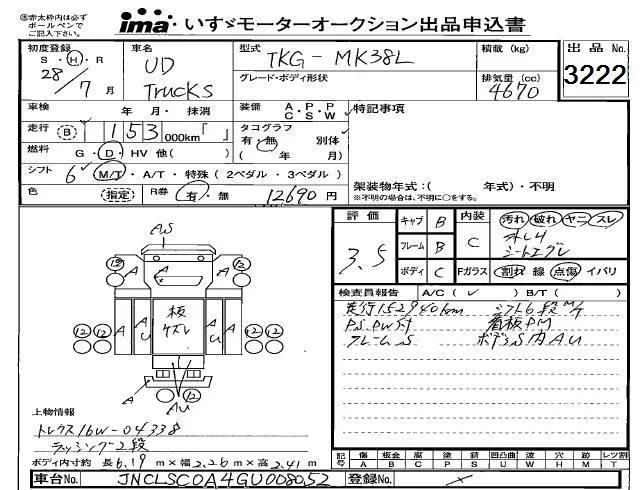 ㊟赤太枠内は必ず
ボールペンで
ご記入下さい。
ima・いすゞモーターオークション出品申込書
初度登録 車名 型式 TKG-MK38L 積載(kg) 出品No.
S・H・R UD グレード・ボディ形状 排気量(cc) 3222
28/7月 Trucks 4670
車検 年 月・ 抹消 装備 A・P・P C・S・W 特記事項
走行 B 153000km「 」 タコグラフ
有・無 別体
燃料 G・D・HV 他( ) ( 年 月)
シフト 6 M/T・A/T・特殊(2ペダル・3ペダル)
架装物年式:( 年式)・不明
色 (指定) R券 有・無 12690円 ※不明の場合は、不明に○をする。
評価 キャブ B 内装 汚れ 破れ ヤニ スレ
3.5 フレーム B C
ボディ C Fガラス 割れ 線 点傷 イバリ
検査員報告 A/C(✓) B/T( )
走行152940km シフト6段M/T
P.S.PW付 看板PM
フレームS ボデーS内AU
AS
12 A A 12
板
ケズレ
12 12 A A U A U A 12 12
A 12
AU
上物情報
トレクス16W-04338
ラッシング2段
ボディ内寸約 長6.19m×幅2.26m×高2.41m
記号 傷 板金 腐 塗 錆 凹凸曲 波 穴 跡 レツ割
A B C P S U W H M T
車台No. JNCLSC0A4GU008052 登録No.